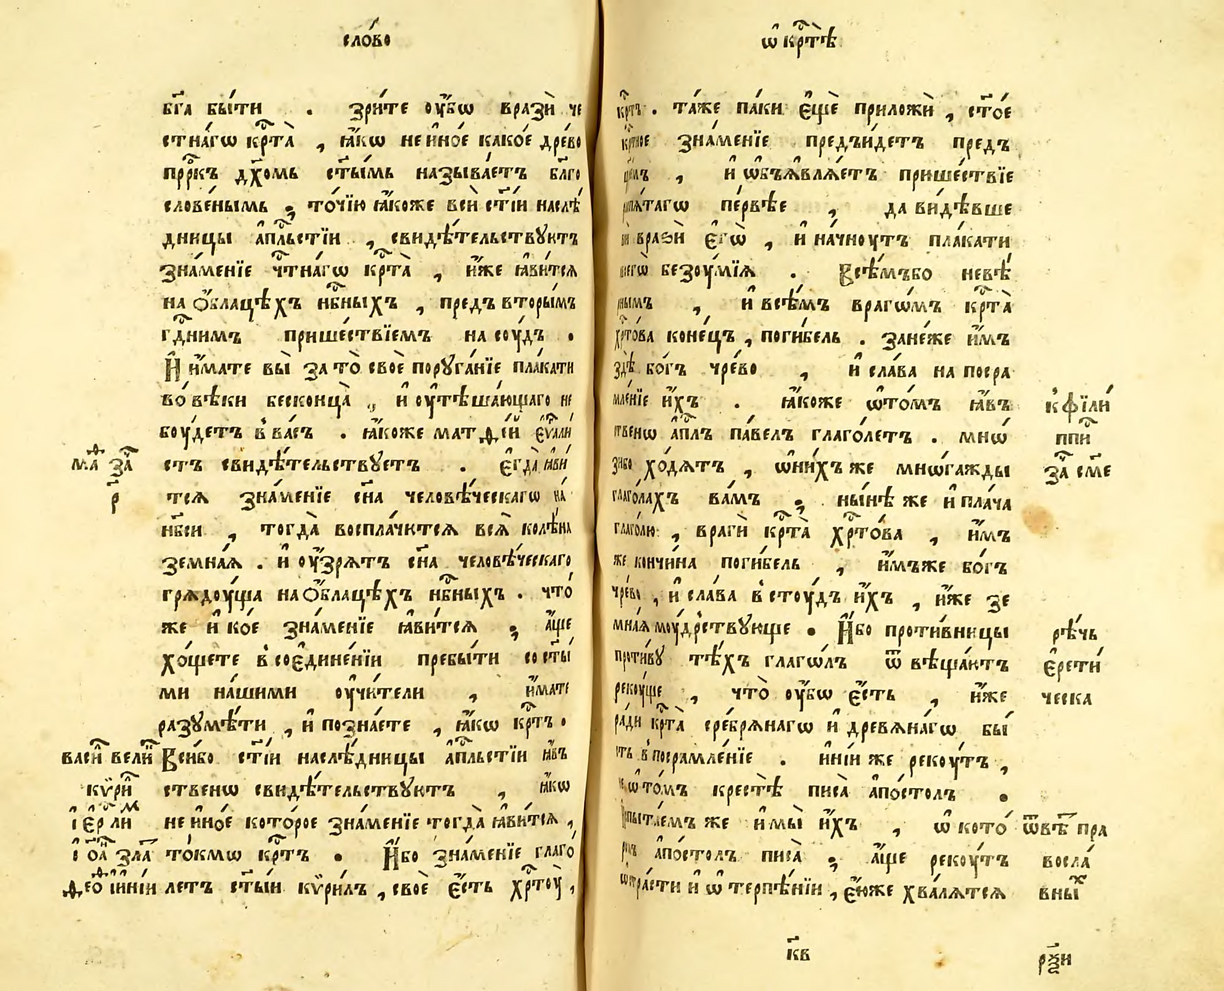 сло́во
бг҃а бы́ти . зри́те оу҆́бѡ врази̑ че
стна́гѡ крⷭ҇та̀ , ꙗ҆́кѡ не и҆но́е како́е дре́во
прⷪ҇ркъ дх҃омъ ст҃ы́мъ называ́етъ бл҃го
слове́нымъ , то́чїю ꙗ҆́коже вси̑ ст҃і́и наслѣ́
дницы а҆пⷭ҇льстїи , свидѣ́тельствꙋютъ
зна́менїе чⷭ҇тна́гѡ крⷭ҇та̀ , и҆́же ꙗ҆́витсѧ
на ѻ҆́блацѣхъ нбⷭ҇ныхъ , предъ вторы́мъ
гдⷭ҇нимъ прише́ствїемъ на сꙋ́дъ .
И҆ и҆́мате вы̀ за то̀ своѐ порꙋга́нїе пла́кати
во́ вѣки бесконца̀ , и҆ оу҆тѣша́ющаго не
бꙋ́детъ в҆ ва́съ . ꙗ҆́коже матѳе́й є҆ѵⷢ҇али
стъ свидѣ́тельствꙋетъ . є҆гда̀ ꙗ҆ви́
тсѧ зна́менїе сн҃а человѣ́ческагѡ на́
нб҃си , тогда̀ воспла́чютсѧ всѧ̑ колѣ́на
земна́ѧ . и҆ оу҆́зрѧтъ сн҃а человѣ́ческаго
грѧдꙋ́ща на ѻ҆́блацѣхъ нбⷭ҇ныхъ . что́
же и҆ ко́е зна́менїе ꙗ҆́витсѧ , а҆́ще
хо́щете в҆ соедине́нїи пребы́ти со ст҃ы́
ми на́шими оу҆чи́тели , и҆́мате
разꙋмѣ́ти , и҆ позна́ете , ꙗ҆́кѡ крⷭ҇тъ .
Всѝбо ст҃і́и наслѣ́дницы а҆пⷭ҇льстїи ꙗ҆́въ
ственѡ свидѣ́тельствꙋютъ , ꙗ҆́кѡ
не и҆но́е кото́рое зна́менїе тогда̀ ꙗ҆ви́тсѧ ,
то́кмѡ крⷭ҇тъ . И҆́бо зна́менїе глаго́
летъ ст҃ы́й кѷри́лъ , своѐ є҆́сть хрⷭ҇тꙋ̀ ,
мⷴ҇а за҃
р
васи́й вели́й
кѷри́
і҆ер ли
і҆оⷶ҇ зла
ѳео и҆ні́и
ѡ҆ крⷭ҇тѣ̀
крⷭ҇тъ . та́же па́ки є҆щѐ приложѝ , ст҃о́е
зна́менїе предъи́детъ предъ
, и҆ ѡ҆бъѧвлѧ́етъ прише́ствїе
пе́рвѣе , да ви́дѣвше
врази̑ є҆гѡ̀ , и҆ начнꙋ́тъ пла́кати
безꙋ́мїѧ . Всѣ́мъбо невѣ́
, и҆ всѣ́мъ врагѡ́мъ крⷭ҇та̀
хрⷭ҇то́ва коне́цъ , поги́бель . зане́же и҆̀мъ
здѣ̀ бо́гъ чре́во , и҆ сла́ва на посра
мле́нїе и҆́хъ . ꙗ҆́коже ѡ҆ то́мъ ꙗ҆́въ
ственѡ а҆пⷭ҇лъ па́велъ глаго́летъ . мно́ѕ
ѕибо хо́дѧтъ , ѡ҆ ни́хъ же мно́гажды
глаго́лахъ ва́мъ , ны́нѣ же и҆ пла́ча
глаго́лю , врагѝ крⷭ҇та̀ хрⷭ҇то́ва , и҆́мъ
же кончи́на поги́бель , и҆́мъже бо́гъ
чре́во , и҆ сла́ва в҆ стꙋдъ и҆́хъ , и҆́же зе
мна́ѧ мꙋ́дрствꙋюще . И҆́бо проти́вницы
проти́вꙋ тѣ́хъ глаго́лъ ѿвѣща́ютъ
рекꙋ́ще , что̀ оу҆́бѡ є҆́сть , и҆́же
ра́ди крⷭ҇та̀ сре́брѧнагѡ и҆ древѧ́нагѡ бы́
ть в҆ посрамле́нїе . и҆ні́и же рекꙋ́тъ ,
не ѡ҆ то́мъ крестѣ̀ писа̀ а҆по́столъ .
и҆спыта́емъ же и҆ мы̀ и҆́хъ , ѡ҆ кото́
ромъ а҆по́столъ писа̀ , а҆́ще рекꙋ́тъ
ѡ҆ стра́сти и҆ ѡ҆ терпѣ́нїи , є҆́юже хвалѧ́тсѧ
к҆ филі́
ппи
за҃ сме
рѣ́чь
є҆рети́
ческа
ѿвѣ пра
восла́
вныⷯ
к҃в
рѯ҃и